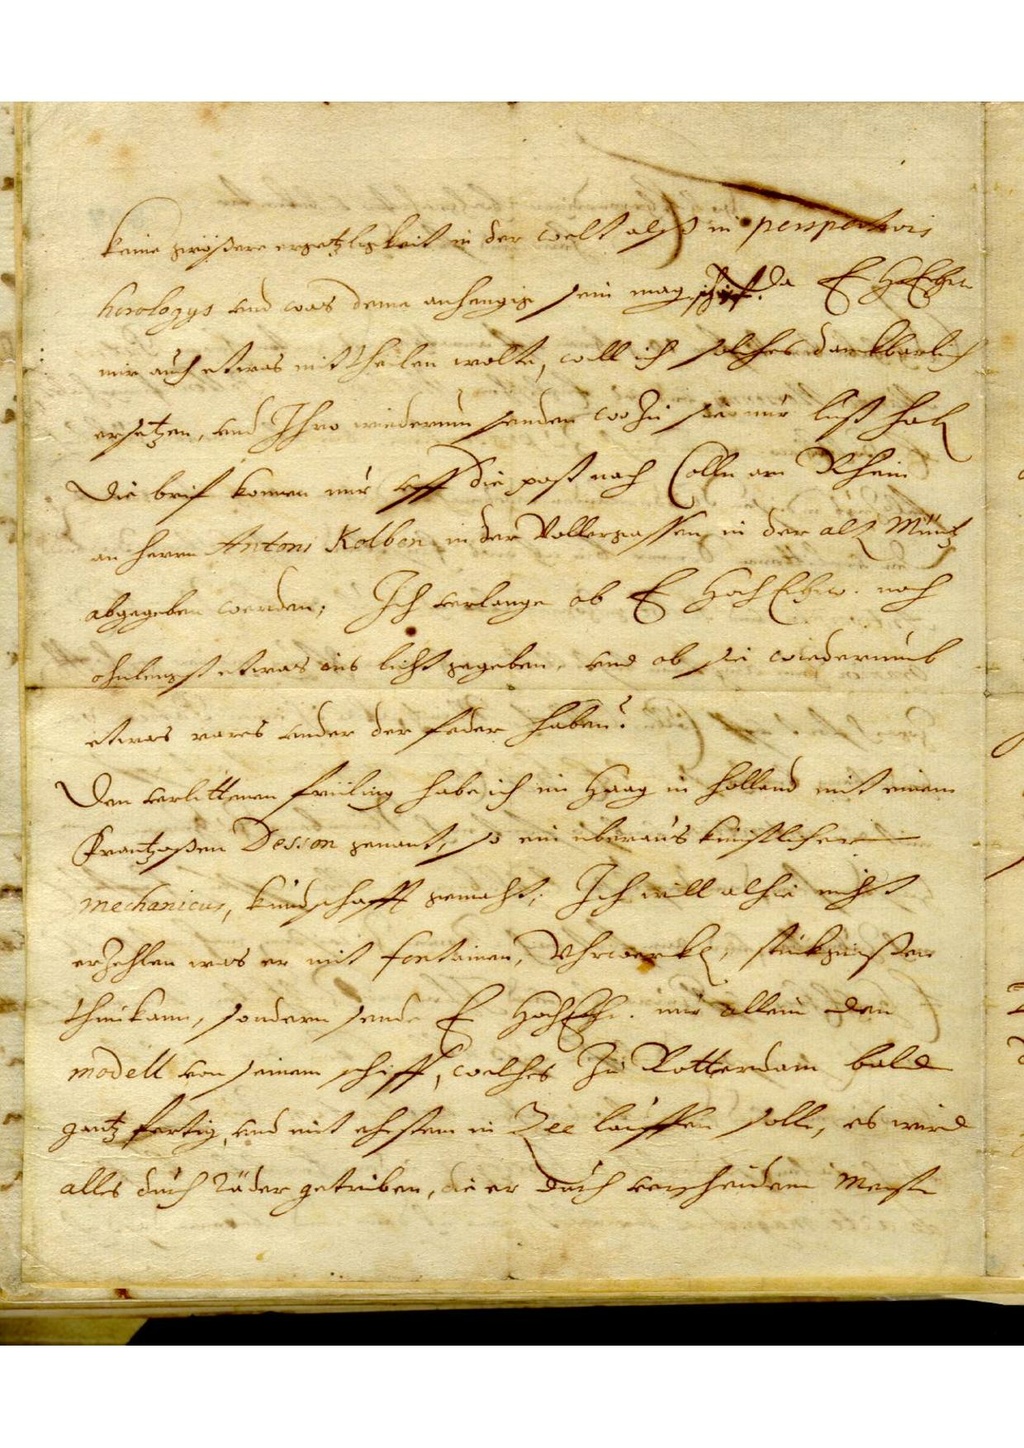 keine größere ergetzligkeit in der welt alß in perspectivis
horologys und was deme anhengig sein mag. da E HEhrw
mir auch etwas mittheilen wolte, will ich solches danckbarlich
ersetzen, und Ihro wiederumb senden wo Zu sie nur lust hat
Die brif konnen nur uff die post nach Colln am Rhein
an herrn Antoni Kolben in der Vollergassen in der alt Müntz
abgegeben werden; Ich verlange ob E HochEhrw. noch
ohnlengst etwas ins licht gegeben, und ob sie wiederumb
etwas rares under der feder haben?
Den verlittenen früling habe ich im Haag in holland mit einem
Frantzoßen Desson genant, so ein überaus künstlicher
mechanicus, kundschafft gemacht; Ich will alhie nicht
erzehlen was er mit fontainen, Uhrwerken, stückgießen
thun kann, sondern sende E HochEhr. nur allein den
modell von seinem schiff, welches Zu Rotterdam bald
gantz fertig, und mit ehestem in Zee lauffen solle, es wird
alles durch Räder getriben, die er durch verscheidene Mensch